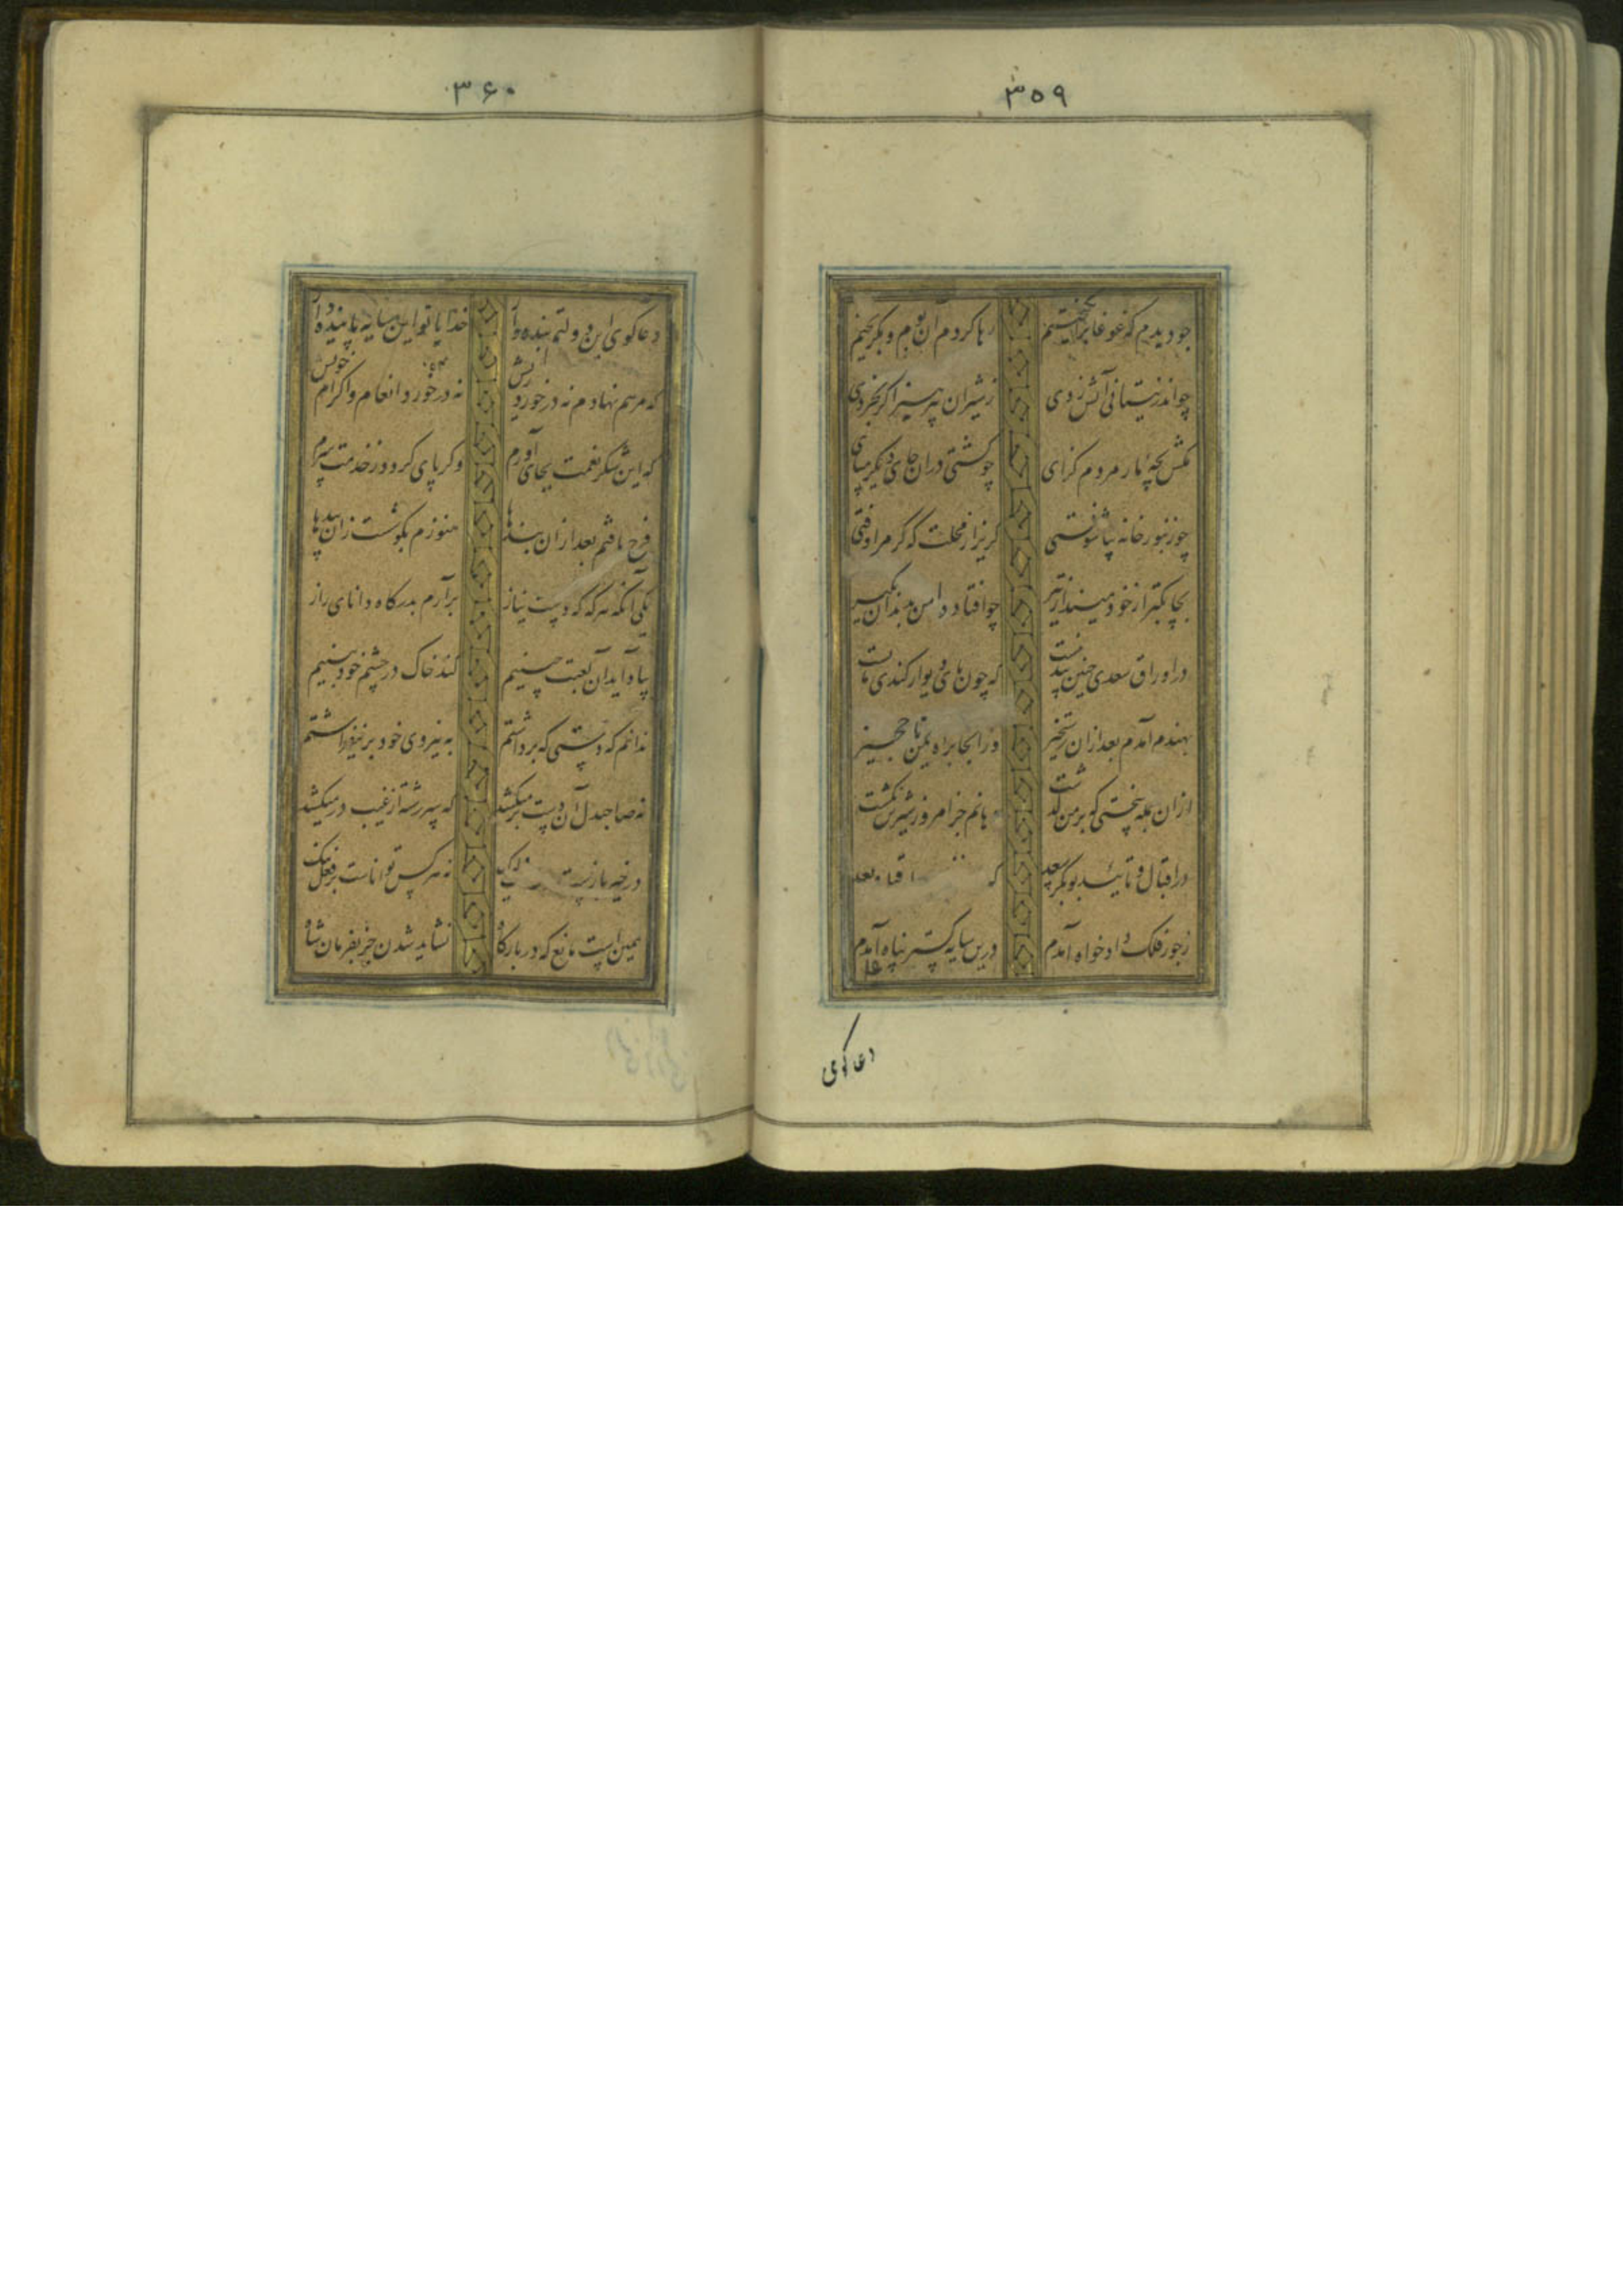 ۳۵۹
چو دیدم که غوغا برانگیختم رها کردم آن بوم و بگریختم
چو اندر نیستانی آتش زدی ز شیران بپرهیز اگر بخردی
مکش بچهٔ مار مردم گزای چو کشتی در آن جای دیگر مپای
چو زنبورخانه بیاشوفتی گریز از محلت که گرم اوفتی
بچابکتر از خود مینداز تیر چو افتاد دامن بدندان بگیر
در اوراق سعدی چنین پند نیست که چون پای دیوار کندی مایست
بهند آمدم بعد از آن رستخیز وز آنجا براه یمن تا حجیز
از آن جمله سختی که بر من گذشت دهانم جز امروز شیرین نگشت
در اقبال و تأیید بوبکر سعد که بعد
ز جور فلک دادخواه آمدم درین سایه گستر پناه آمدم
دعاگوی
۳۶۰
دعاگوی این دولتم بنده‌وار خدایا تو این سایه پاینده دار
که مرهم نهادم نه در خورد ریش نه در خورد انعام و اکرام خویش
که این شکر نعمت بجای آورم وگر پای گردد ز خدمت سرم
فرح یافتم بعد از آن بندها هنوزم بگوشست از آن پندها
یکی آنکه هرگه که دست نیاز برآرم بدرگاه دانای راز
بیاد آید آن لعبت چینیم کند خاک در چشم خودبینیم
ندانم که دستی که برداشتم به نیروی خود بر نیفراشتم
نه صاحبدل آن دست بر میکشد که سررشته از غیب در میکشد
در خیر بازست نه هر کس تواناست بر فعل نیک
همین است مانع که در بارگاه نشاید شدن جز بفرمان شاه